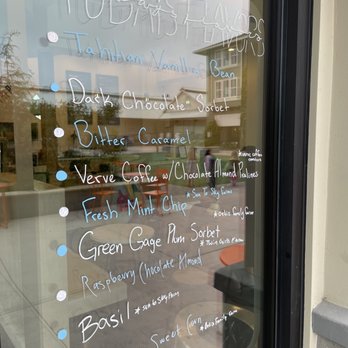 TODAY'S FLAVORS
Tahitian Vanilla Bean
Dark Chocolate Sorbet
Bitter Caramel
Verve Coffee w/Chocolate Almond Pralines
Fresh Mint Chip
Green Gage Plum Sorbet
Raspberry Chocolate Almond
Basil
Sweet Corn